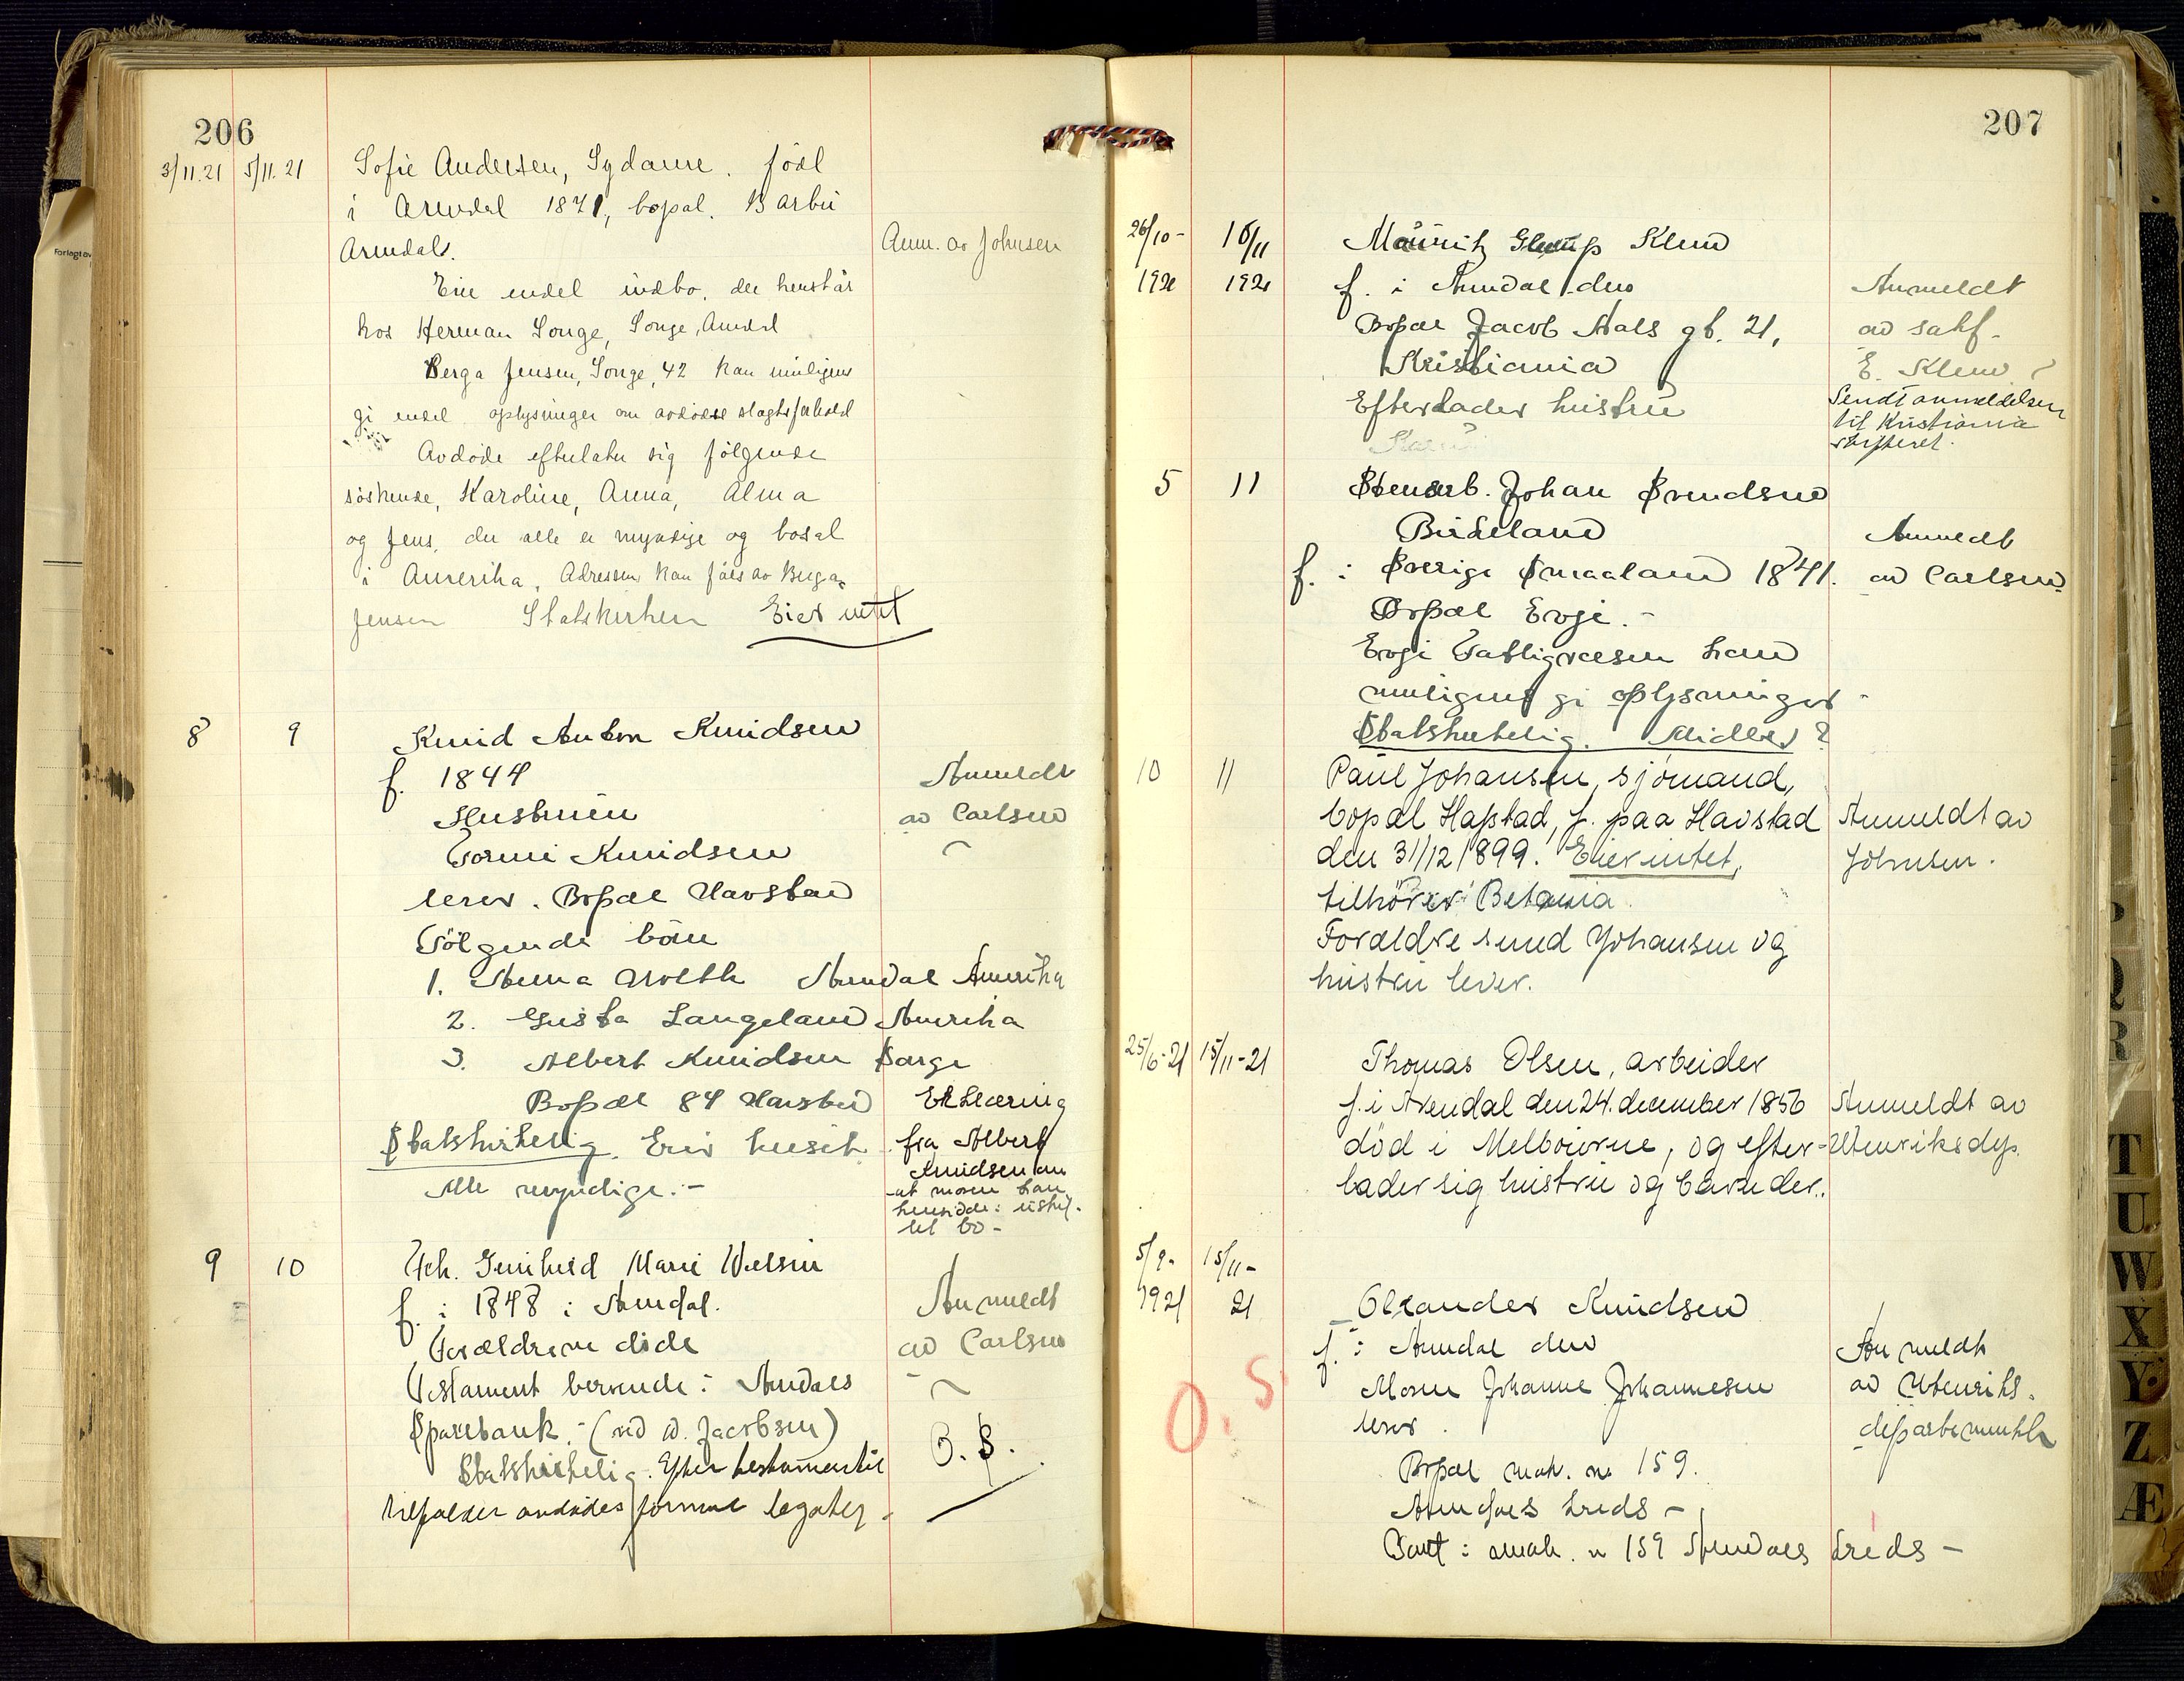 206
3/11.21 5/11.21 Sofie Andersen, Sydame. född
i Arendal 1871, bopæl. Barbu
Arendals. Anm. av Johnsen
Eier endel indbo, der henstår
hos Herman Songe, Songe, Arendal
Berga Jensen, Songe, 42 kan muligens
gi endel oplysninger om avdødes slagtsforhold
Avdøde efterlater sig følgende
søskende, Karoline, Anna, Alma
og Jens, der alle er myndige og bosat
i Amerika. Adressen kan fåes av Berga
Jensen Statskirken Eier intet
8 9 Knud Anton Knudsen
f. 1844 Anmeldt
Hustruen av Carlsen
Tomine Knudsen
lever. Bopæl Havstad
Følgende børn
1. Anna Arendal Amerika
2. Gusta Langeland Amerika
3. Albert Knudsen Sarge
Bopæl 84 Havstad Erklæring
Statskirkelig. Eier huset fra Albert
Alle myndige.- Knudsen om
at moren kan
hensidde i uskif-
tet bo-
9 10 Frk. Gunhild Marie Nielsen
f. i 1848 i Arendal. Anmeldt
Forældrene døde av Carlsen
Testament beroende i Arendals
Sparebank.- (ved A. Jacobsen) B. S.
Statskirkelig. Efter testamentet
tilfalder avdødes formue legater -
207
26/10- 16/11 Mauritz Glerup Klem
1921 1921 f. i Arendal den Anmeldt
Bopæl Jacob Aals gt. 21, av sakf.
Kristiania E. Klem
Efterlader hustru Sendt anmeldelsen
til Kristiania
skifteret.
5 11 Stenarb. Johan Svendsen
Birkeland Anmeldt
f. i Sverige Smaaland 1841. av Carlsen
Bopæl Evje.-
Evje Fattigvæsen kan
muligens gi oplysninger -
Statskirkelig. Midler?
10 11 Paul Johansen, sjømand,
bopæl Hafstad, f. paa Havstad Anmeldt av
den 31/12 1899. Eier intet, Johnsen.
tilhører Betania
Forældre Smed Johansen og
hustru lever.
25/6-21 15/11-21 Thomas Olsen, arbeider
f. i Arendal den 24. december 1856 Anmeldt av
død i Melbourne, og efter- Utenriksdep.
lader sig hustru og barn der.
5/9- 15/11-
1921 21 Olxander Knudsen
f. i Arendal den Anmeldt
O. S. Moren Johanne Johannesen av Utenriks-
lever. departementet
Bopæl mat. no 159.
Arendals kreds -
Født i matr. n 159 Arendals kreds -
T
U
W
X
Y
Z
Æ